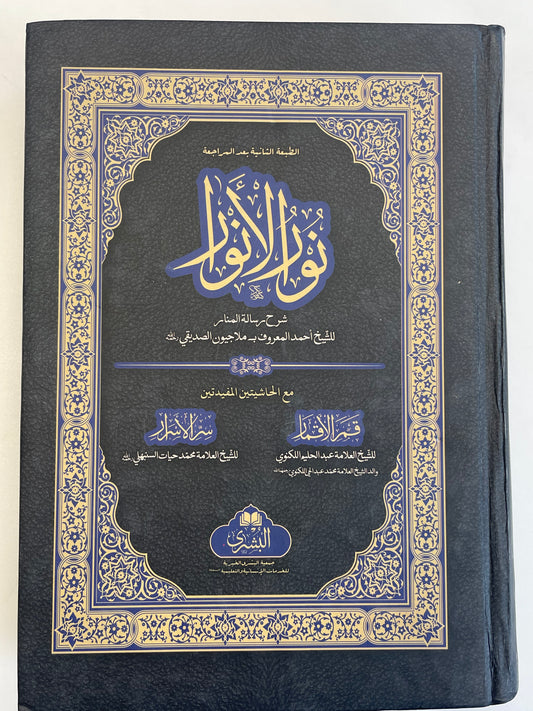 الطبعة الثانية بعد المراجعة
نُورُ الأَنْوَار
شرح رسالة المنار
للشيخ أحمد المعروف بـ ملاجيون الصديقي رحمه الله
مع الحاشيتين المفيدتين
قمر الأقمار
للشيخ العلامة عبد الحليم اللكنوي
والد الشيخ العلامة محمد عبد الحي اللكنوي رحمهما الله
سر الأسرار
للشيخ العلامة محمد حيات السنبهلي رحمه الله
البشرى
جمعية البشرى الخيرية
للخدمات الإنسانية والتعليمية